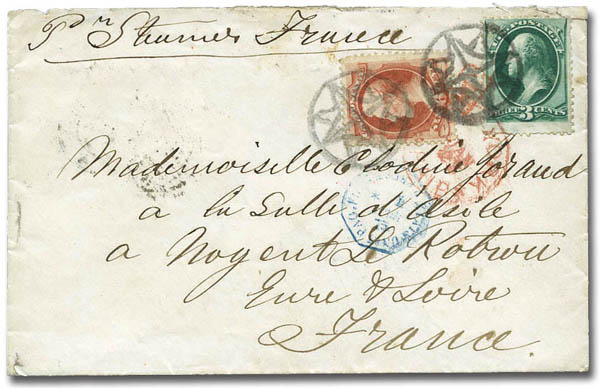 Pr Steamer France
U.S. POSTAGE
THREE 3 CENTS
Mademoiselle Clodine Goraud
a la Salle d'asile
a Nogent Le Rotrou
Eure & Loire
France